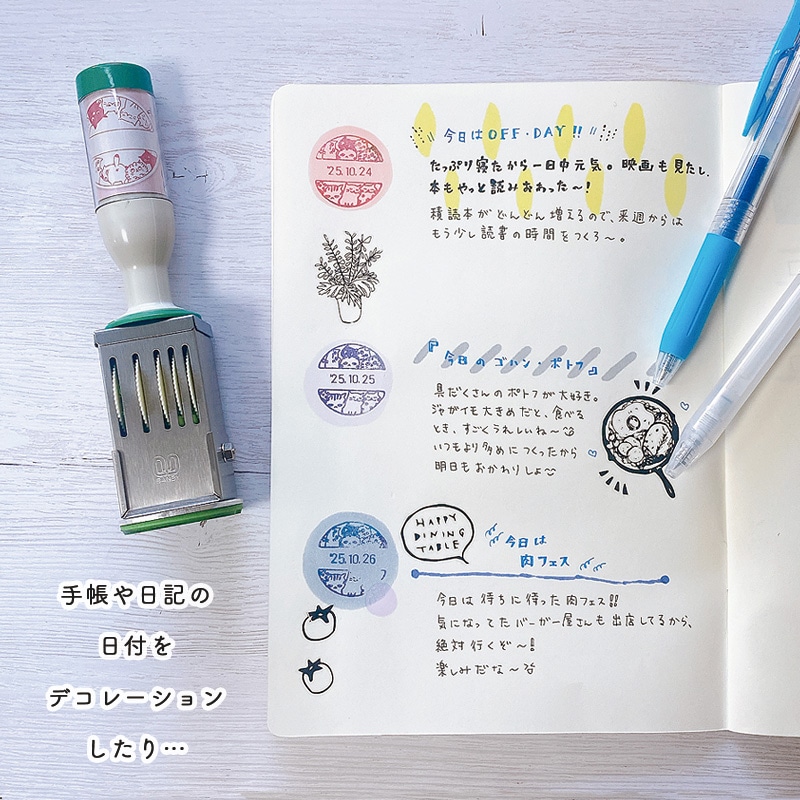 '25.10.24
今日はOFF・DAY!!
たっぷり寝たから一日中元気。映画も見たし、
本もやっと読みおわった〜!
積読本がどんどん増えるので、来週からは
もう少し読書の時間をつくろ〜。
'25.10.25
『今日のゴハン・ポトフ』
具だくさんのポトフが大好き。
ジャガイモ大きめだと、食べる
とき、すごくうれしいね〜
いつもより多めにつくったから
明日もおかわりしよ
'25.10.26
HAPPY
DINING
TABLE
今日は
肉フェス
今日は待ちに待った肉フェス!!
気になってたバーガー屋さんも出店してるから、
絶対行くぞ〜!
楽しみだな〜
手帳や日記の
日付を
デコレーション
したり…